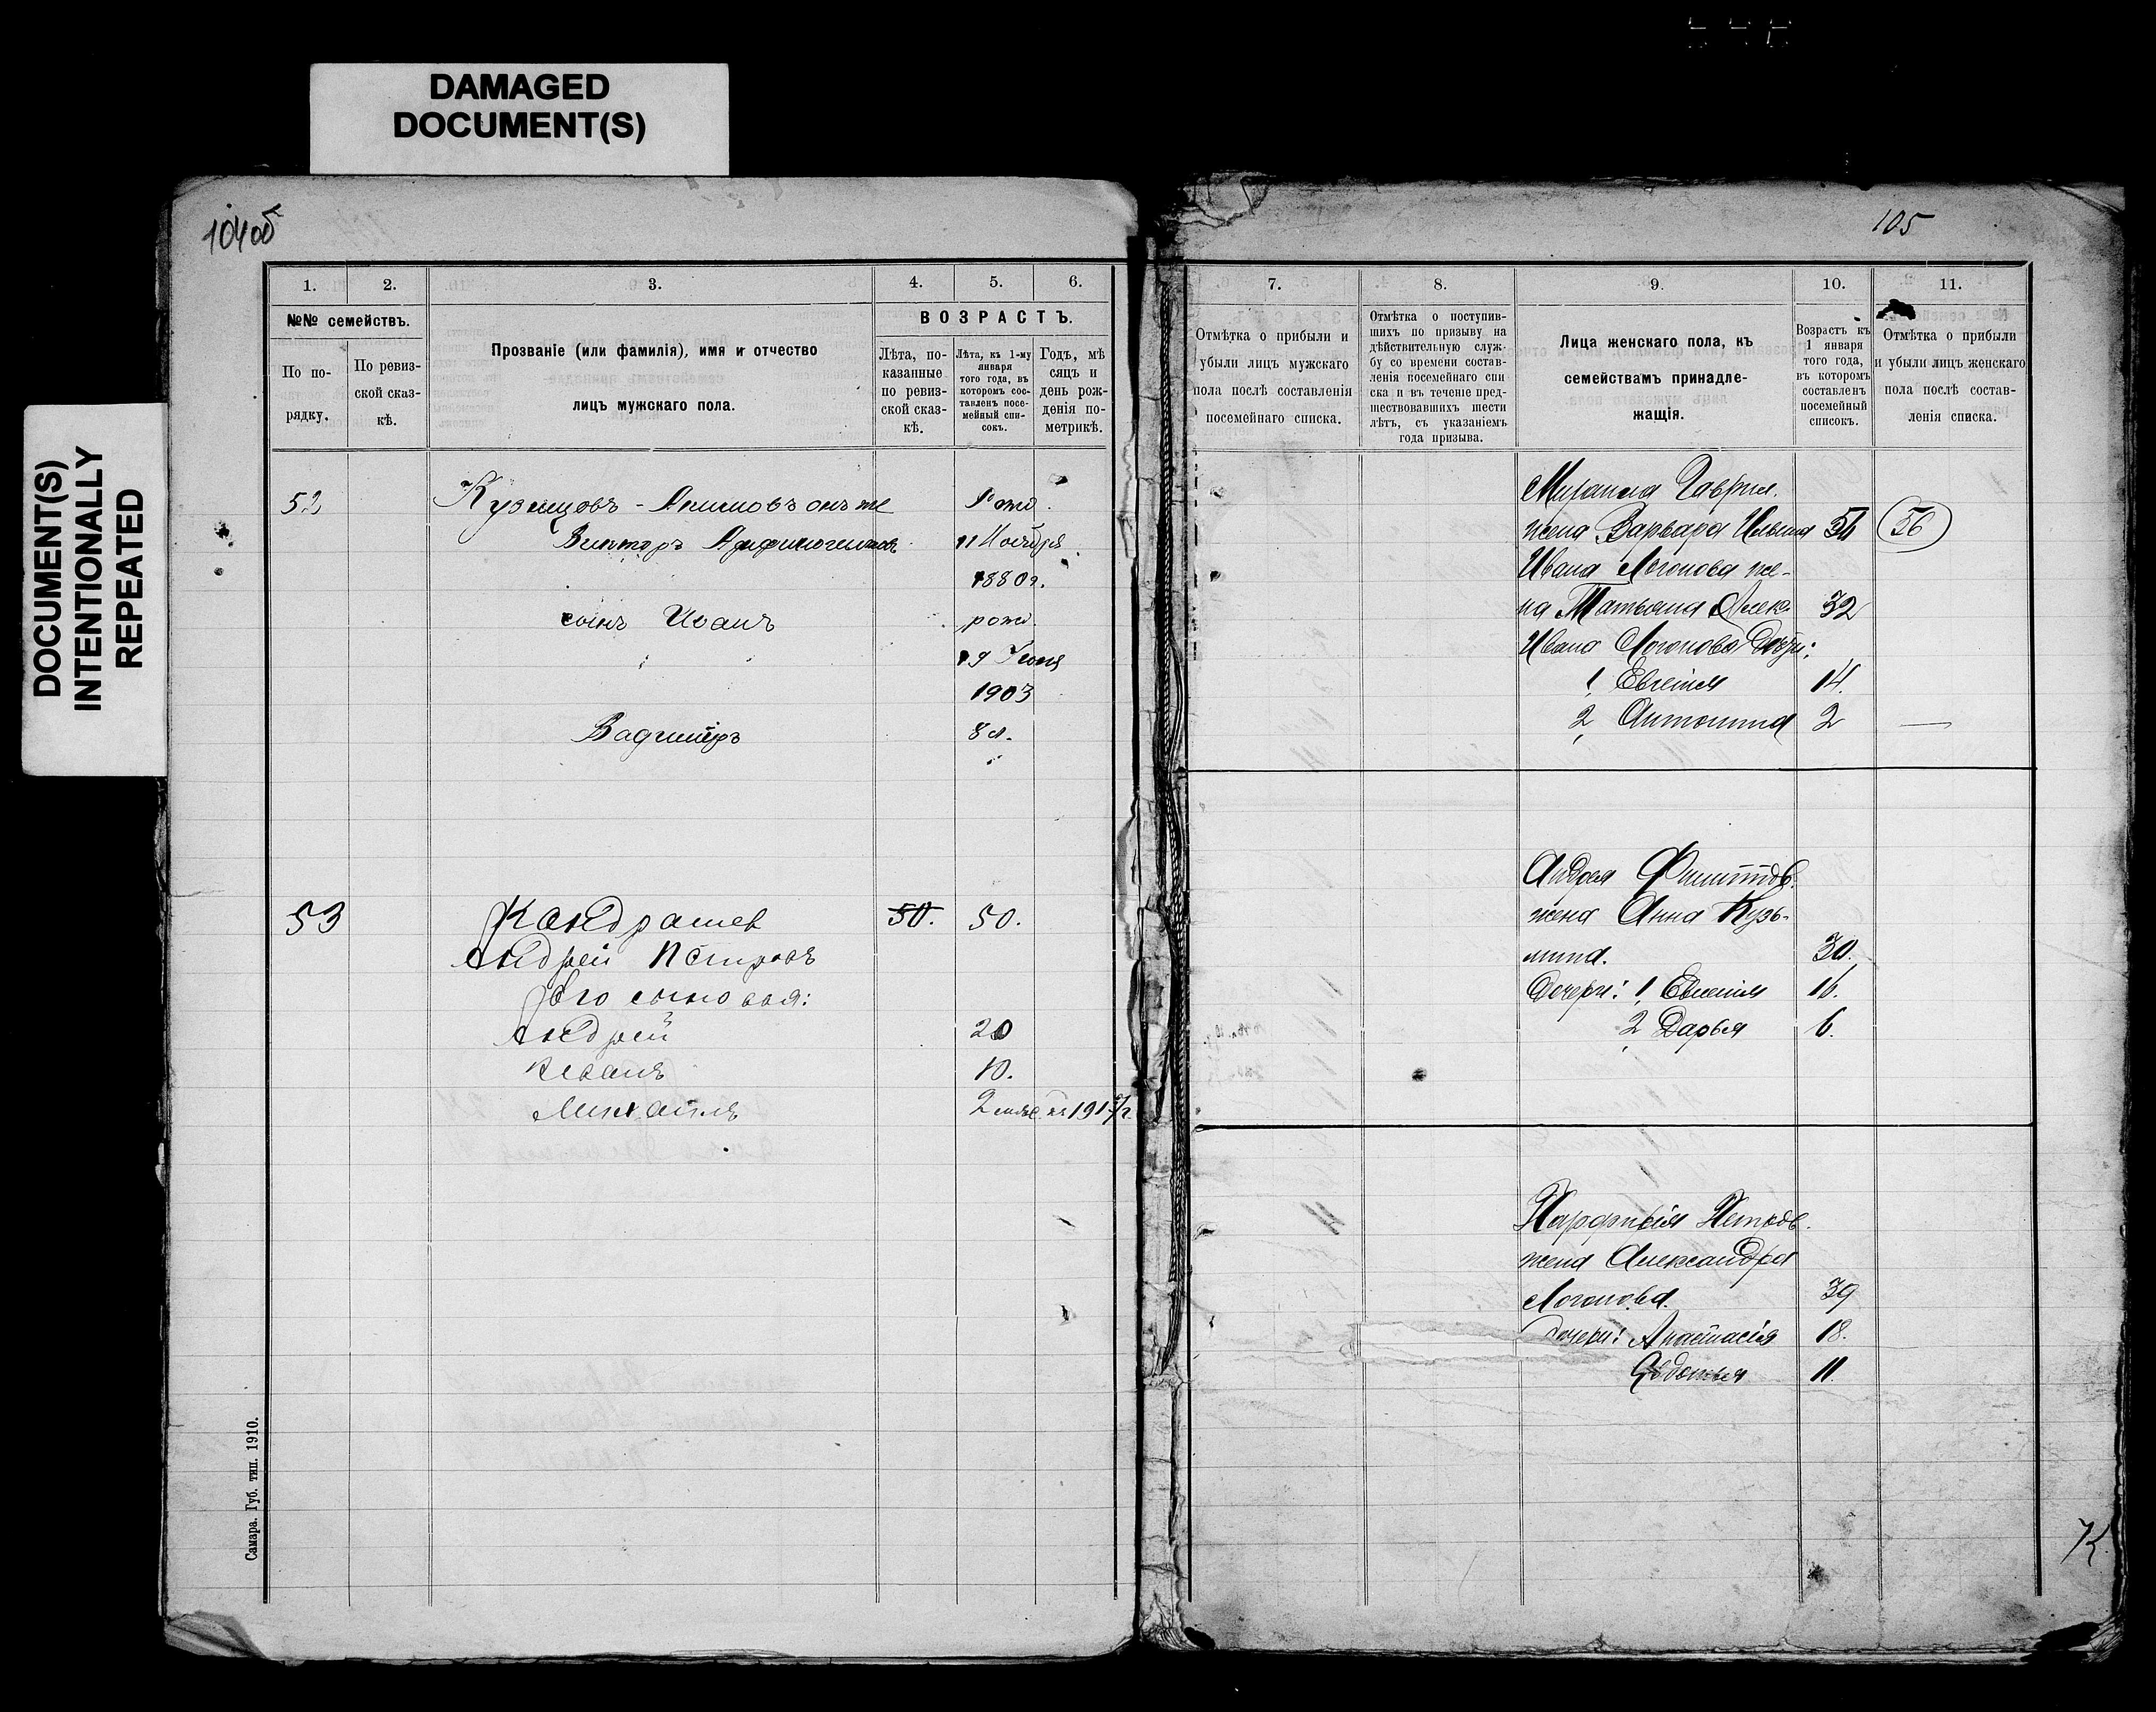 DAMAGED
DOCUMENT(S)
DOCUMENT(S)
INTENTIONALLY
REPEATED
104об
1.
2.
3.
4.
5.
6.
№№ семействъ.
По по-
рядку.
По ревиз-
ской сказ-
кѣ.
Прозваніе (или фамилія), имя и отчество
лицъ мужскаго пола.
ВОЗРАСТЪ.
Лѣта, по-
казанные
по ревиз-
ской сказ-
кѣ.
Лѣта, къ 1-му
января
того года, въ
которомъ сос-
тавленъ посе-
мейный спи-
сокъ.
Годъ, мѣ
сяцъ и
день рож-
денія по-
метрикѣ.
52
Кузнецовъ - Акимовъ онъ же
Рожд.
Викторъ
11 Ноября
1880г.
сынъ Иванъ
рожд.
19 Іюня
1903
Вадимиръ
8 л.
53
Кондрашев
50.
50.
Андрей Петровъ
Его сыновья:
Андрей
20
Иванъ
10.
Михаилъ
2
Самара. Губ. тип. 1910.
105
7.
8.
9.
10.
11.
Отмѣтка о прибыли и
убыли лицъ мужскаго
пола послѣ составленія
посемейнаго списка.
Отмѣтка о поступив-
шихъ по призыву на
дѣйствительную служ-
бу со времени состав-
ленія посемейнаго спи
ска и въ теченіе пред-
шествовавшихъ шести
лѣтъ, съ указаніемъ
года призыва.
Лица женскаго пола, къ
семействамъ принадле-
жащія.
Возрастъ къ
1 января
того года,
въ которомъ
составленъ
посемейный
списокъ.
Отмѣтка о прибыли
и убыли лицъ женскаго
пола послѣ состав-
ленія списка.
Михаила Гаврил.
жена Варвара Ильина
56
Ивана Логонова же-
на Татьяна Алек.
32
Ивана Логонова дочери:
1, Евгенія
14.
2, Антонина
2
Андрея Филиппов.
жена Анна Кузь-
мина.
30.
Дочери: 1, Евгенія
16.
2, Дарья
6.
Парфенія Петров.
жена Александра
Логонова.
39
дочери: Анастасія
18.
Евдокія
11
К.